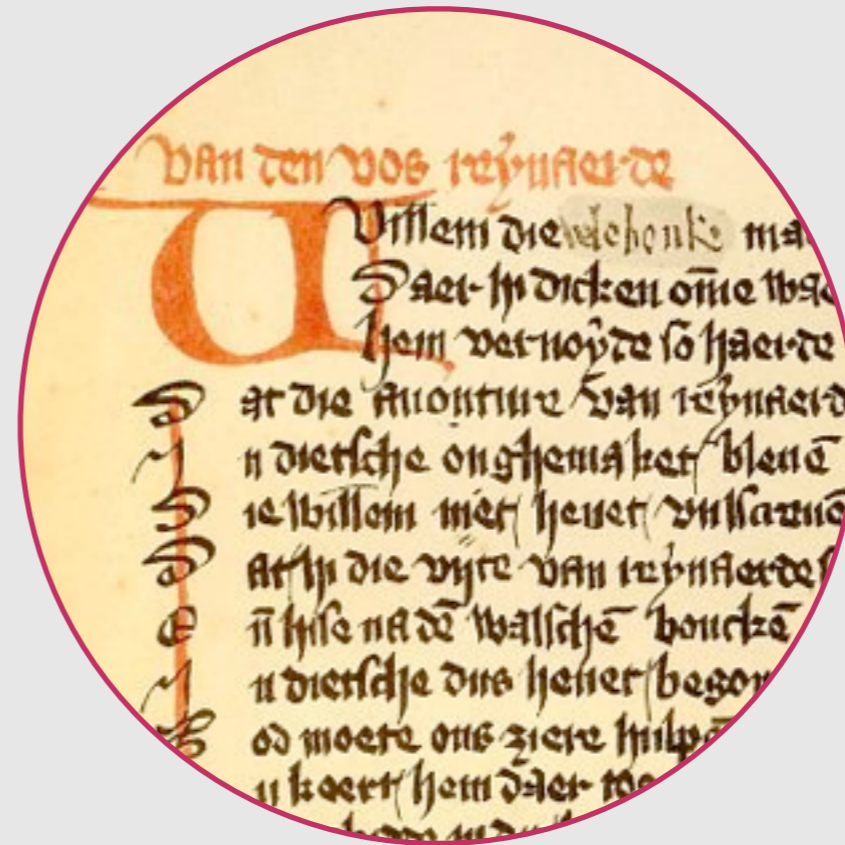 Van den vos reynaerde
Willem die vele bouke ma
Daer hi dicken om̄e wae
hem vernoyde so haerde
Dat die auonture van reynaerd
In dietsche onghemaket bleuē
Die willem niet heuet vulscreuē
Dat hi die vijte van reynaerde
Eñ hise na dē walschē bouckē
In dietsche dus heuet begon
God moete ons ziere hulpē
Nu keert hem daer toe